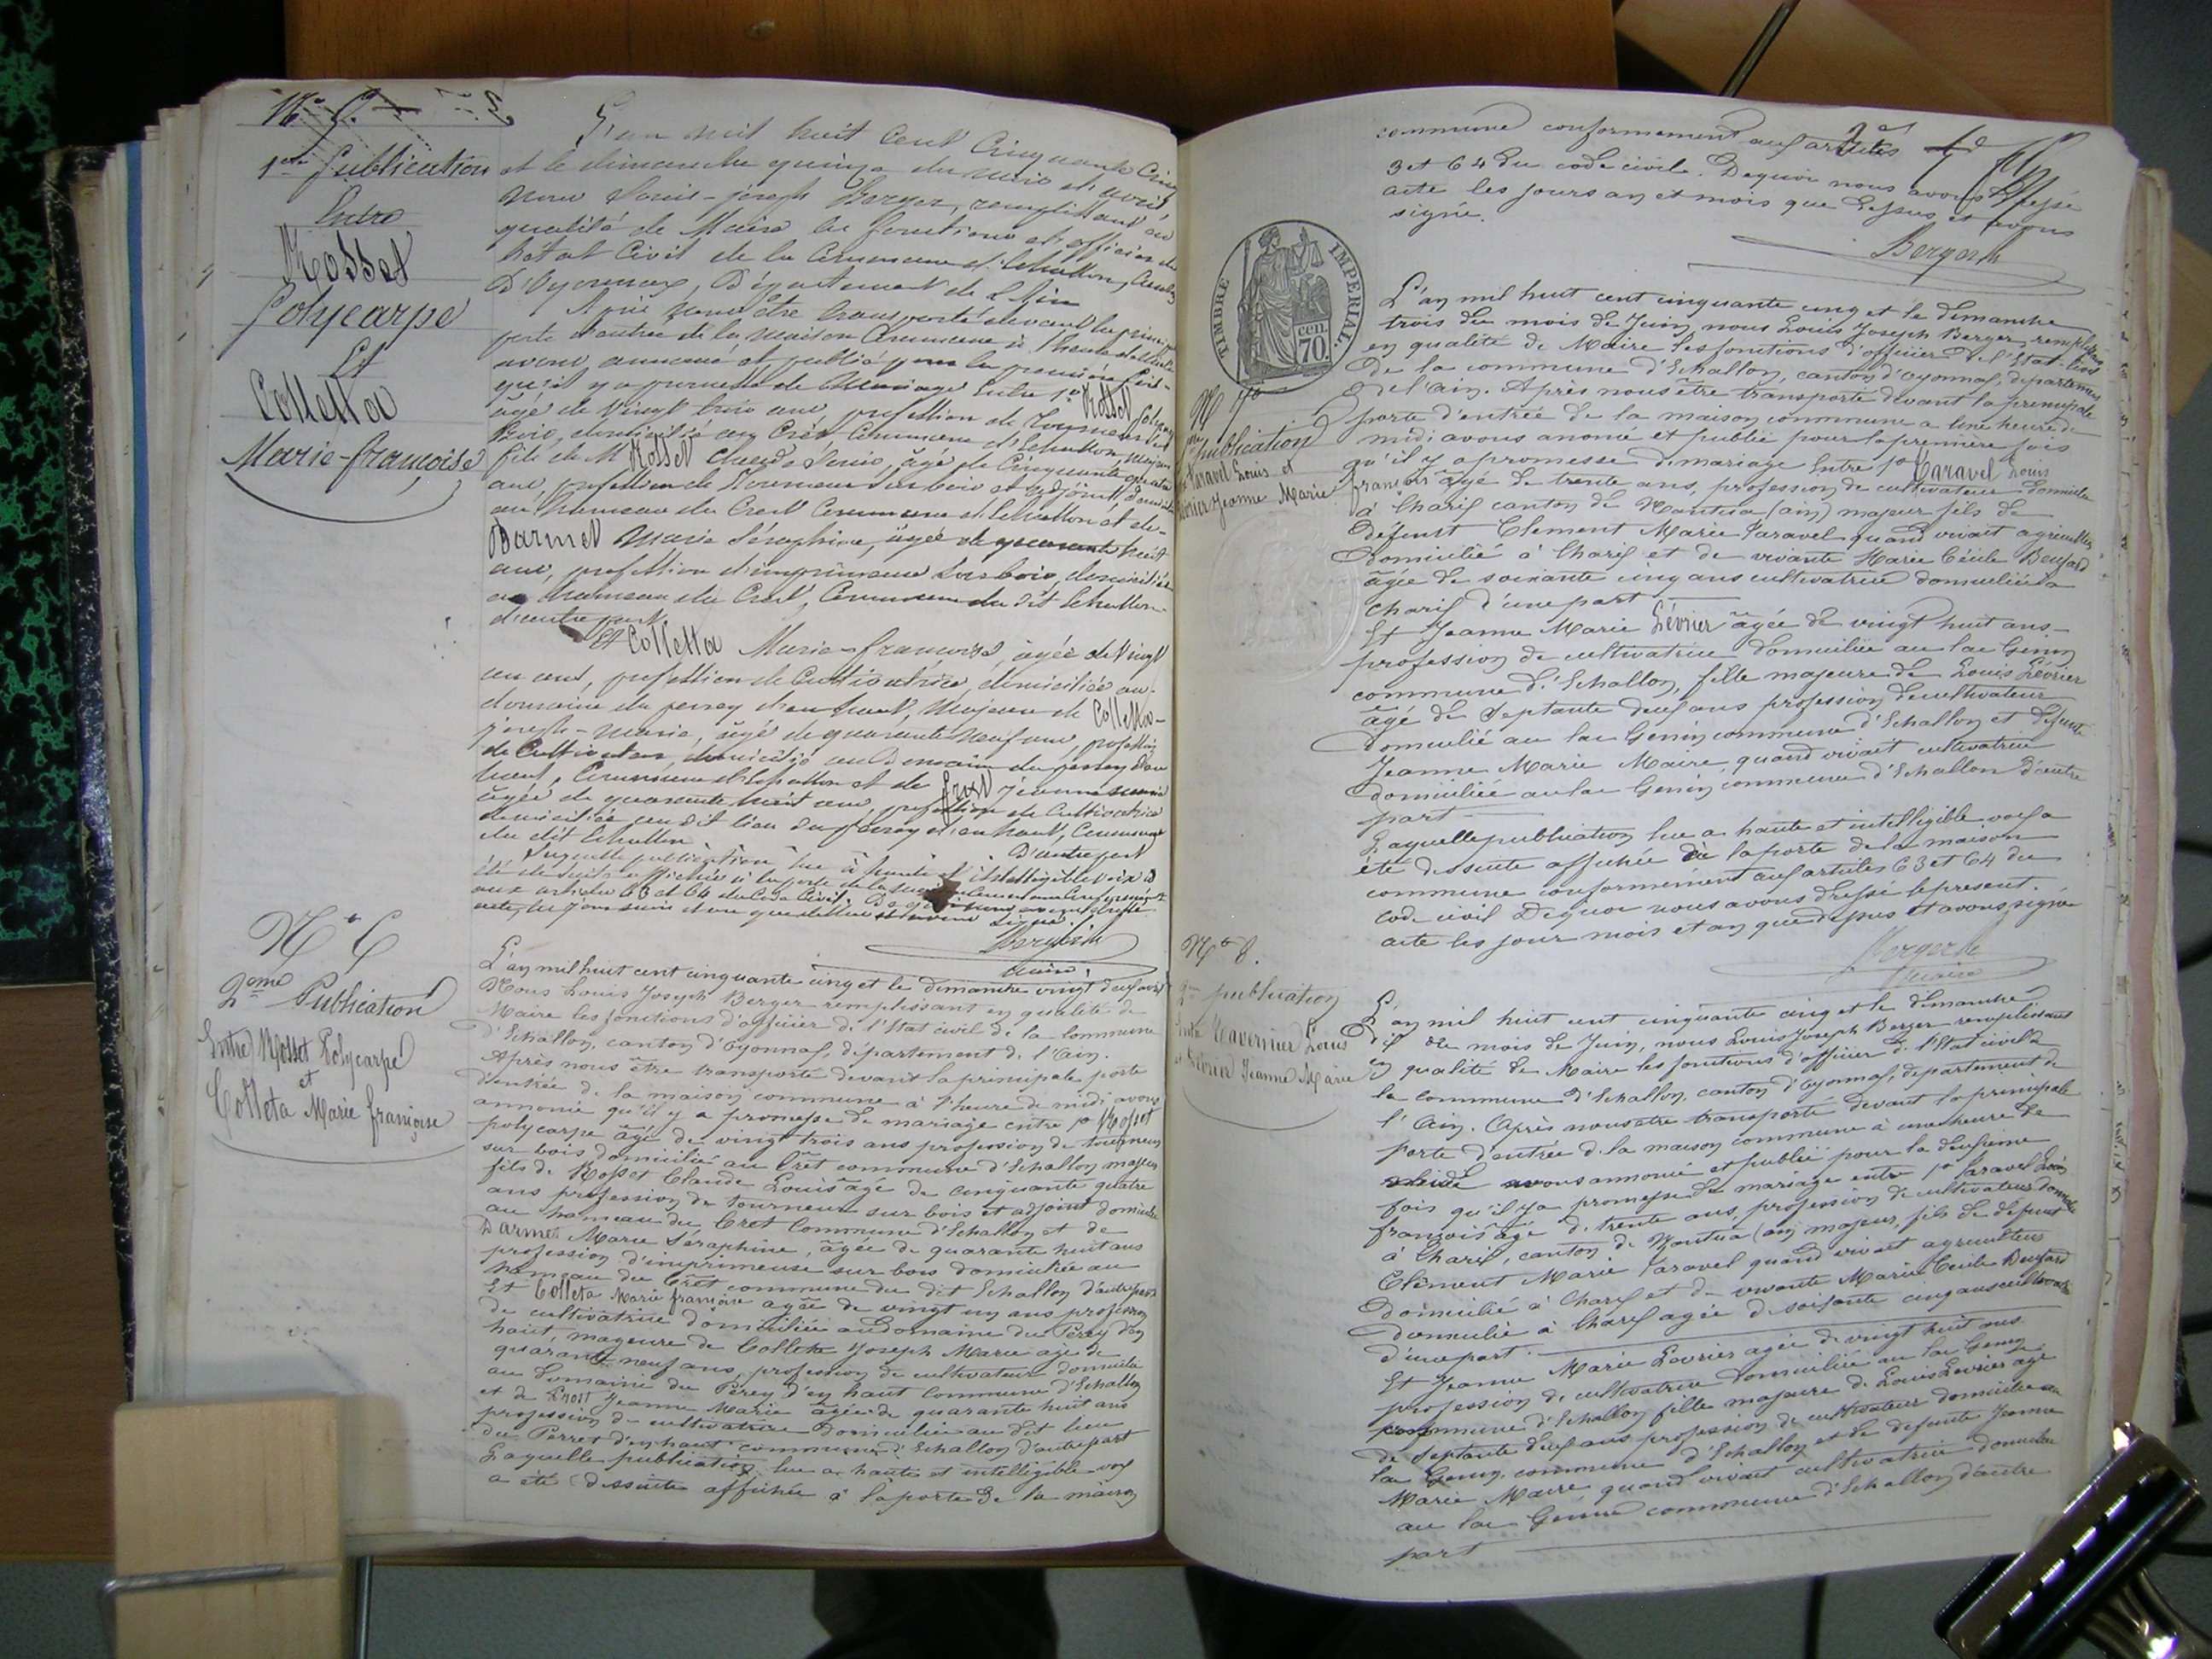 N° 5.
1ere Publication
Entre
Rosset
Polycarpe
Et
Colletta
Marie-françoise
L'an mil huit cent Cinquante Cinq
et le dimanche quinze du mois d'avril
nous Louis-joseph Berger, remplissant en
qualité de Maire les fonctions d'officier de
l'état Civil de la Commune d'Echallon, Canton
D'Oyonnax, Département de l'Ain
Après nous être transporté devant la principale
porte d'entrée de la maison Commune à l'heure de midi
avons annoncé et publié pour la première fois
qu'il y a promesse de Mariage Entre 1° Rosset Polycarpe
âgé de Vingt trois ans, profession de Tourneur sur
Bois, domicilié au Crêt Commune d'Echallon, majeur
fils de M Rosset Claude Louis, âgé de Cinquante quatre
ans, profession de Tourneur sur bois et adjoint, domicilié
au hameau du Cret Commune d'Echallon et de
Darmet Marie Séraphine, âgée de quarante huit
ans, profession d'imprimeuse sur bois, domiciliée
au hameau du Cret, Commune du dit Echallon
d'autre part
Et Colletta Marie-françoise, âgée de Vingt
un ans, profession de Cultivatrice, domiciliée au
domaine du perrey d'en haut, Majeure de Colletta
joseph-marie, âgé de quarante neuf ans, profession
de Cultivateur, domicilié au Domaine du perrey d'en
haut, Commune d'Echallon et de frost jeanne marie
âgée de quarante huit ans, profession de Cultivatrice
domiciliée au dit lieu du perrey d'en haut, Commune
du dit Echallon D'autre part
Laquelle publication lue à haute et intelligible voix a
été de suite affichée à la porte de la
aux articles 63 et 64 du Code Civil. De quoi
acte, les jour mois et an que dessus et avons signé
Berger
Maire
N° 6
2eme Publication
Entre Rosset Polycarpe
et
Colleta Marie françoise
L'an mil huit cent cinquante cinq et le dimanche vingt deux avril
Nous Louis Joseph Berger remplissant en qualité de
Maire les fonctions d'officier de l'Etat civil de la Commune
d'Echallon, canton d'Oyonnax, département de l'Ain.
Après nous être transporté devant la principale porte
d'entrée de la maison commune à l'heure de midi avons
annoncé qu'il y a promesse de mariage entre 1° Rosset
polycarpe âgé de vingt trois ans profession de tourneur
sur bois domicilié au Crêt commune d'Echallon majeur
fils de Rosset Claude Louis âgé de cinquante quatre
ans profession de tourneur sur bois et adjoint domicilié
au hameau du Cret Commune d'Echallon et de
Darmet Marie Séraphine, âgée de quarante huit ans
profession d'imprimeuse sur bois domiciliée au
hameau du Crêt commune du dit Echallon d'autre part
Et Colleta Marie françoise agée de vingt un ans profession
de cultivatrice domiciliée au Domaine du Pèrey d'en
haut, mageure de Colletta Joseph Marie agé de
quarante neuf ans, profession de cultivateur domicilié
au Domaine du Pèrey d'en haut Commune d'Echallon
et de Prost Jeanne Marie agée de quarante huit ans
profession de cultivatrice domiciliée au dit lieu
du Perret d'en haut commune d'Echallon d'autre part
Laquelle publication lue a haute et intelligible voix
a été dessuite affichée à la porte de la maison
commune conformement aux articles
3 et 64 du code civile. Dequoi nous avons dressé
acte les jours an et mois que dessus et avons
signé.
Berger
TIMBRE IMPERIAL.
70. cen
N° 7
publication
Taravel Louis et
Levrier Jeanne Marie
L'an mil huit cent cinquante cinq et le dimanche
trois du mois de Juin, nous Louis Joseph Berger, remplissant
en qualité de Maire les fonctions d'officier de l'Etat-civil
de la commune d'Echallon, canton d'oyonnax, departement
de l'ain. Après nous être transporté devant la principale
porte d'entrée de la maison commune a une heure de
midi avons anoncé et publié pour la première fois
qu'il y a promesse de mariage entre 1° Taravel Louis
françois âgé de trente ans, profession de cultivateur domicilié
à Charix canton de Nantua (ain) majeur fils de
défunt Clement Marie Taravel quand vivait agriculteur
domicilié à Charix et de vivante Marie Cécile
agée de soixante cinq ans cultivatrice domiciliée a
Charix d'une part
Et Jeanne Marie Lévrier agée de vingt huit ans
profession de cultivatrice domiciliée au lac Genin
commune d'Echallon, fille majeure de Louis Lévrier
âgé de septante deux ans profession de cultivateur
domicilié au lac Genin commune d'Echallon et défunte
Jeanne Marie Maire, quand vivait cultivatrice
domiciliée au lac Genin commune d'Echallon d'autre
part
Laquelle publication lue a haute et intelligible voix a
été dessuite affichée à la porte de la maison
commune conformément aux articles 63 et 64 du
code civil Dequoi nous avons dressé le present.
acte les jour mois et an que dessus et avons signé
Berger
Maire
N° 8.
2me publication
Entre Tavernier Louis
et Lévrier Jeanne Marie
L'an mil huit cent cinquante cinq et le dimanche
dix du mois de Juin, nous Louis Joseph Berger remplissant
en qualité de Maire les fonctions d'officier de l'Etat civil de
la commune d'Echallon, canton d'Oyonnax, departement de
l'Ain. Après nous etre transporté devant la principale
porte d'entrée de la maison commune à une heure de
midi avons annoncé et publié pour la deuxieme
fois qu'il y a promesse de mariage entre 1° Taravel Louis
françois âgé de trente ans, profession de cultivateur domicilié
à Charix, canton de Nantua (ain) majeur, fils de défunt
Clèment Marie Taravel quand vivait agriculteur
domicilié à Charix et de vivante Marie Cecile
domicilié à Charix agée de soixante cinq ans cultivatrice
d'une part.
Et Jeanne Marie Levrier agée de vingt huit ans
profession de cultivatrice domiciliée au lac Genin
commune d'Echallon fille majeure de Louis Levrier agé
de septante deux ans profession de cultivateur domicilié au
lac Genin, commune d'Echallon et de defunte Jeanne
Marie Maire, quand vivait cultivatrice domiciliée
au lac Genin commune d'Echallon d'autre
part